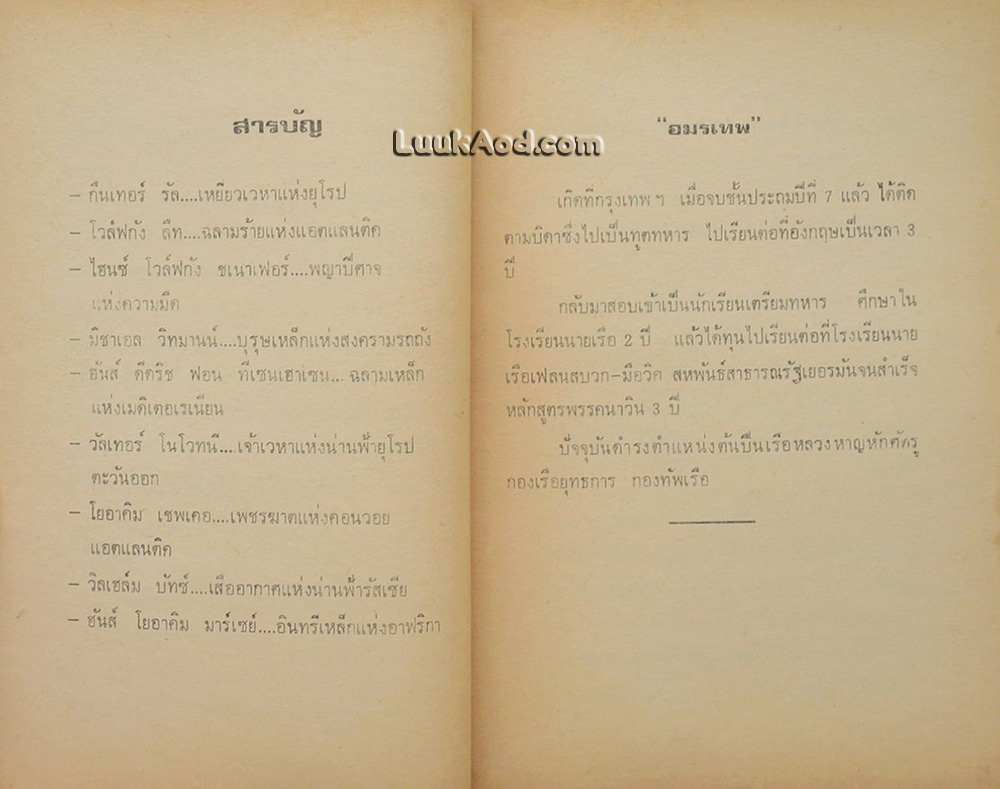 สารบัญ
– กึนเทอร์ รัล....เหยี่ยวเวหาแห่งยุโรป
– โวล์ฟกัง ลืท....ฉลามร้ายแห่งแอตแลนติค
– ไฮนซ์ โวล์ฟกัง ชเนาเฟอร์....พญาปีศาจ
แห่งความมืด
– มิชาเอล วิทมานน์....บุรุษเหล็กแห่งสงครามรถถัง
– ฮันส์ ดีดริช ฟอน ทีเซนเฮาเซน....ฉลามเหล็ก
แห่งเมดิเตอเรเนียน
– วัลเทอร์ โนโวทนี....เจ้าเวหาแห่งน่านฟ้ายุโรป
ตะวันออก
– โยอาคิม เชพเคอ....เพชรฆาตแห่งคอนวอย
แอตแลนติค
– วิลเฮล์ม บัทซ์....เสืออากาศแห่งน่านฟ้ารัสเซีย
– ฮันส์ โยอาคิม มาร์เซย์....อินทรีเหล็กแห่งอาฟริกา
LuukAod.com
“อมรเทพ”
เกิดที่กรุงเทพฯ เมื่อจบชั้นประถมปีที่ 7 แล้ว ได้ติด
ตามบิดาซึ่งไปเป็นทูตทหาร ไปเรียนต่อที่อังกฤษเป็นเวลา 3
ปี
กลับมาสอบเข้าเป็นนักเรียนเตรียมทหาร ศึกษาใน
โรงเรียนนายเรือ 2 ปี แล้วได้ทุนไปเรียนต่อที่โรงเรียนนาย
เรือเฟลนสบวก-มือวิค สหพันธ์สาธารณรัฐเยอรมันจนสำเร็จ
หลักสูตรพรรคนาวิน 3 ปี
ปัจจุบันดำรงตำแหน่งต้นปืนเรือหลวงหาญหักศัตรู
กองเรือยุทธการ กองทัพเรือ